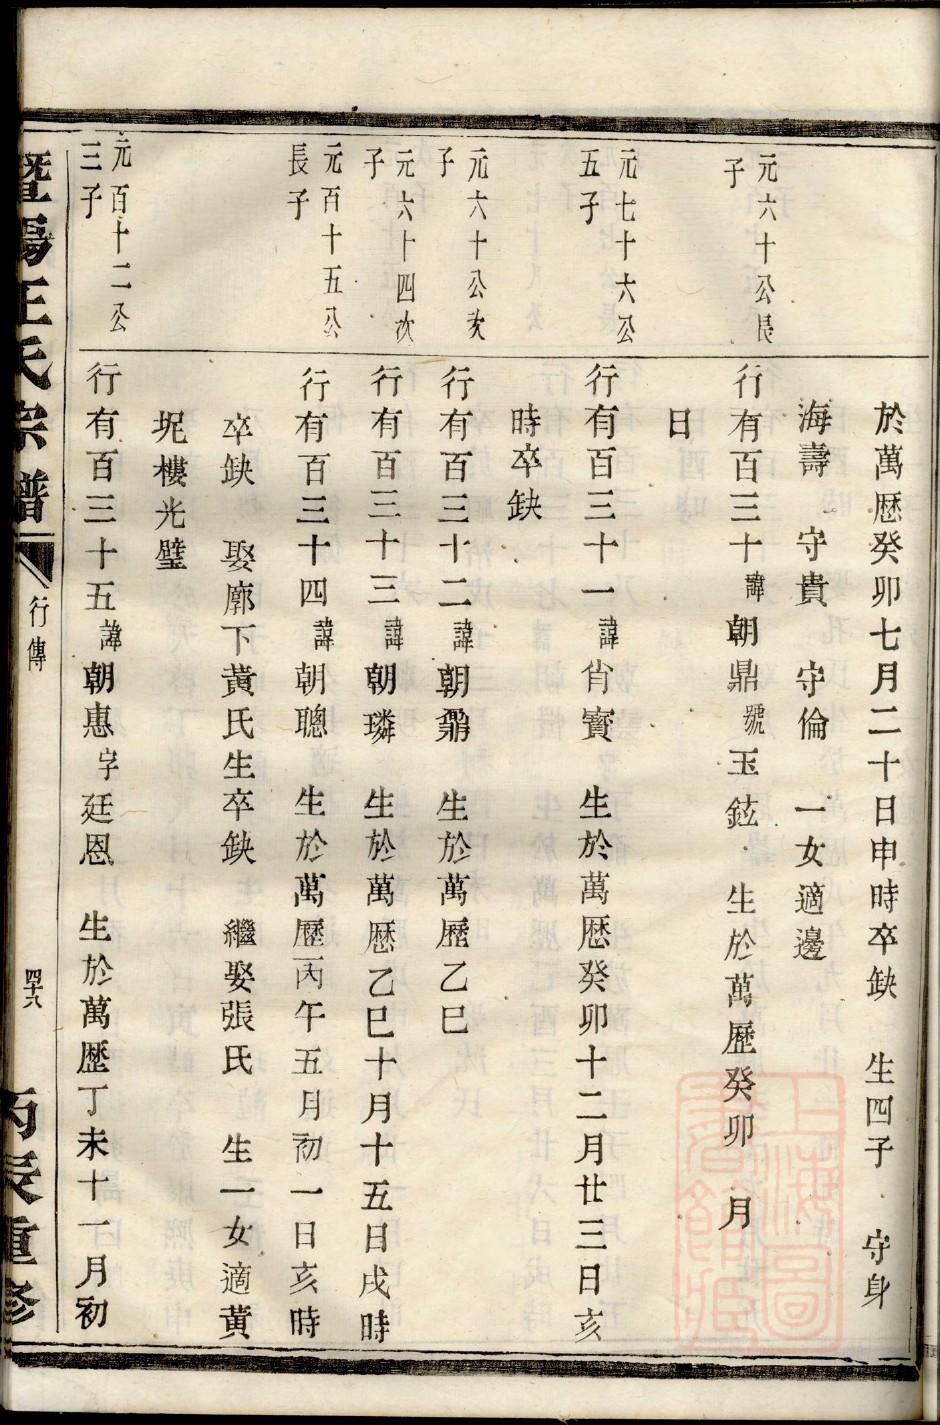 於萬歷癸卯七月二十日申時卒缺　生四子　守身
海壽　守貴　守倫　一女適邊
元六十公長
子
行有百三十諱朝鼎號玉鉉　生於萬歷癸卯　月
日
元七十六公
五子
行有百三十一諱肖寳　生於萬歷癸卯十二月廿三日亥
時卒缺
元六十公次
子
行有百三十二諱朝鼐　生於萬歷乙巳
元六十四次
子
行有百三十三諱朝璘　生於萬歷乙巳十月十五日戌時
元百十五公
長子
行有百三十四諱朝聰　生於萬歷丙午五月初一日亥時
卒缺　娶廓下黃氏生卒缺　繼娶張氏　生一女適黃
坭樓光璧
元百十二公
三子
行有百三十五諱朝惠字廷恩　生於萬歷丁未十一月初
暨陽王氏宗譜
行傳
四十八
丙辰重修